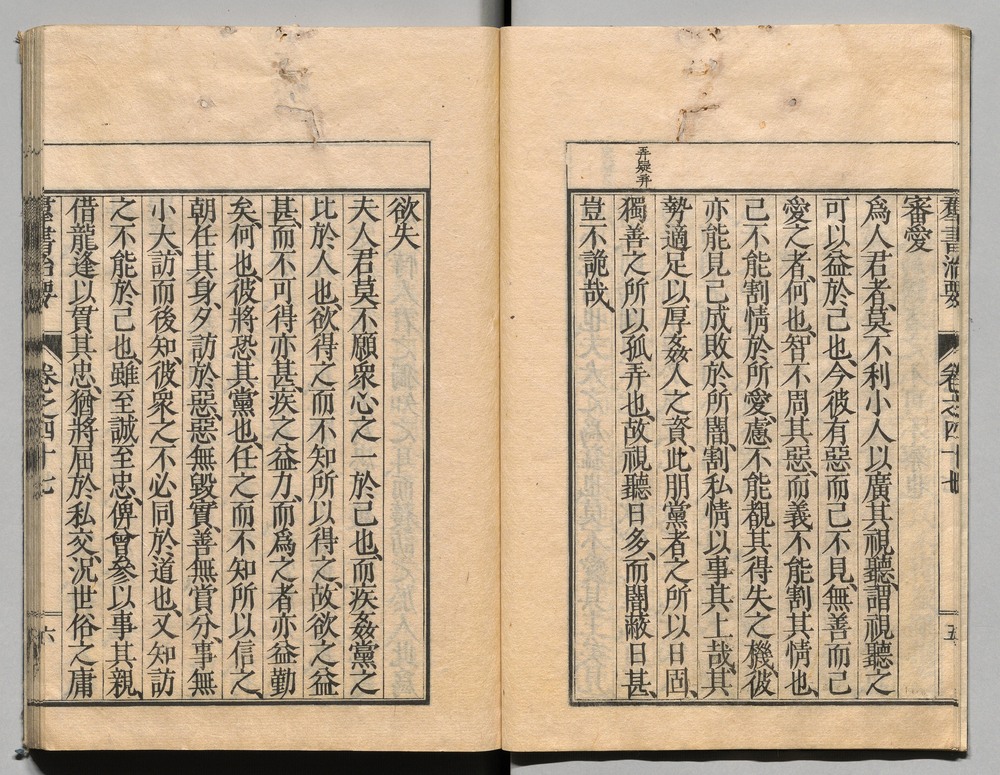 羣書治要 卷之四十七 五
審愛
爲人君者、莫不利小人以廣其視聽、謂視聽之
可以益於己也、今彼有惡而己不見、無善而己
愛之者、何也、智不周其惡、而義不能割其情也、
己不能割情於所愛、慮不能覩其得失之機、彼
亦能見己成敗於所闇、割私情以事其上哉、其
勢適足以厚姦人之資、此朋黨者之所以日固、
獨善之所以孤弄也、故視聽日多、而闇蔽日甚、
弄疑弃
豈不詭哉、
欲失
夫人君莫不願衆心之一於己也、而疾姦黨之
比於人也、欲得之而不知所以得之、故欲之益
甚、而不可得亦甚、疾之益力、而爲之者亦益勤
矣、何也、彼將恐其黨也、任之而不知所以信之、
朝任其身、夕訪於惡、惡無毀實、善無賞分、事無
小大、訪而後知、彼衆之不必同於道也、又知訪
之不能於己也、雖至誠至忠、俾曾參以事其親、
借龍逢以貫其忠、猶將屈於私交、況世俗之庸
羣書治要 卷之四十七 六